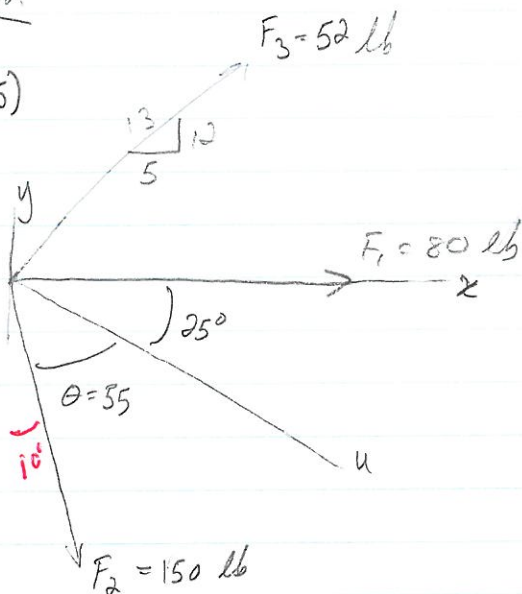 F₃ = 52 lb
5)
13
12
5
y
F₁ = 80 lb
x
25°
θ = 55
u
10°
F₂ = 150 lb